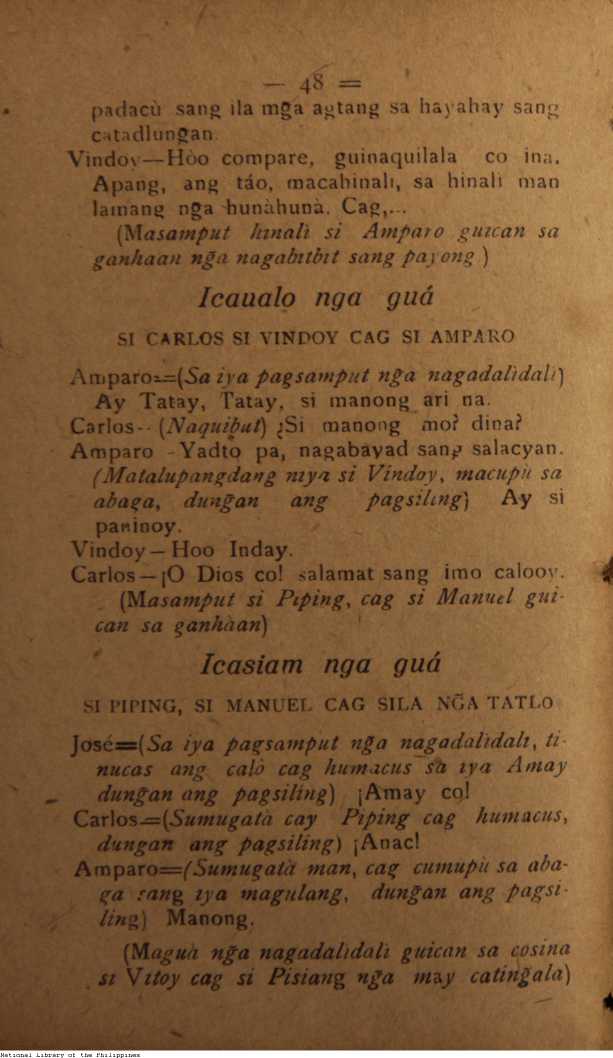 — 48 =
padacù sang ila mg̃a agtang sa hayahay sang
catadlung̃an.
Vindoy—Hòo compare, guinaquilala co ina.
Apang, ang táo, macahinali, sa hinali man
lamang ng̃a hunàhunà. Cag,...
(Masamput hinali si Amparo guican sa
ganhaan ng̃a nagabitbit sang payong)
Icaualo nga guá
SI CARLOS SI VINDOY CAG SI AMPARO
Amparo=(Sa iya pagsamput ng̃a nagadalìdali)
Ay Tatay, Tatay, si manong ari na.
Carlos—(Naquibut) ¿Si manong mo? dina?
Amparo—Yadto pa, nagabayad sang salacyan.
(Matalupangdang niya si Vindoy, macupù sa
abaga, dung̃an ang pagsiling) Ay si
paninoy.
Vindoy—Hoo Inday.
Carlos—¡O Dios co! salamat sang imo calooy.
(Masamput si Piping, cag si Manuel gui-
can sa ganhàan)
Icasiam nga guá
SI PIPING, SI MANUEL CAG SILA NG̃A TATLO
José=(Sa iya pagsamput ng̃a nagadalìdali, ti-
nucas ang calò cag humacus sa iya Amay
dung̃an ang pagsiling) ¡Amay co!
Carlos=(Sumugatà cay Piping cag humacus,
dung̃an ang pagsiling) ¡Anac!
Amparo=(Sumugatà man, cag cumupù sa aba-
ga sang iya magulang, dung̃an ang pagsi-
ling) Manong.
(Maguà ng̃a nagadalìdali guican sa cosina
si Vitoy cag si Pisiang ng̃a may cating̃ala)
National Library of the Philippines